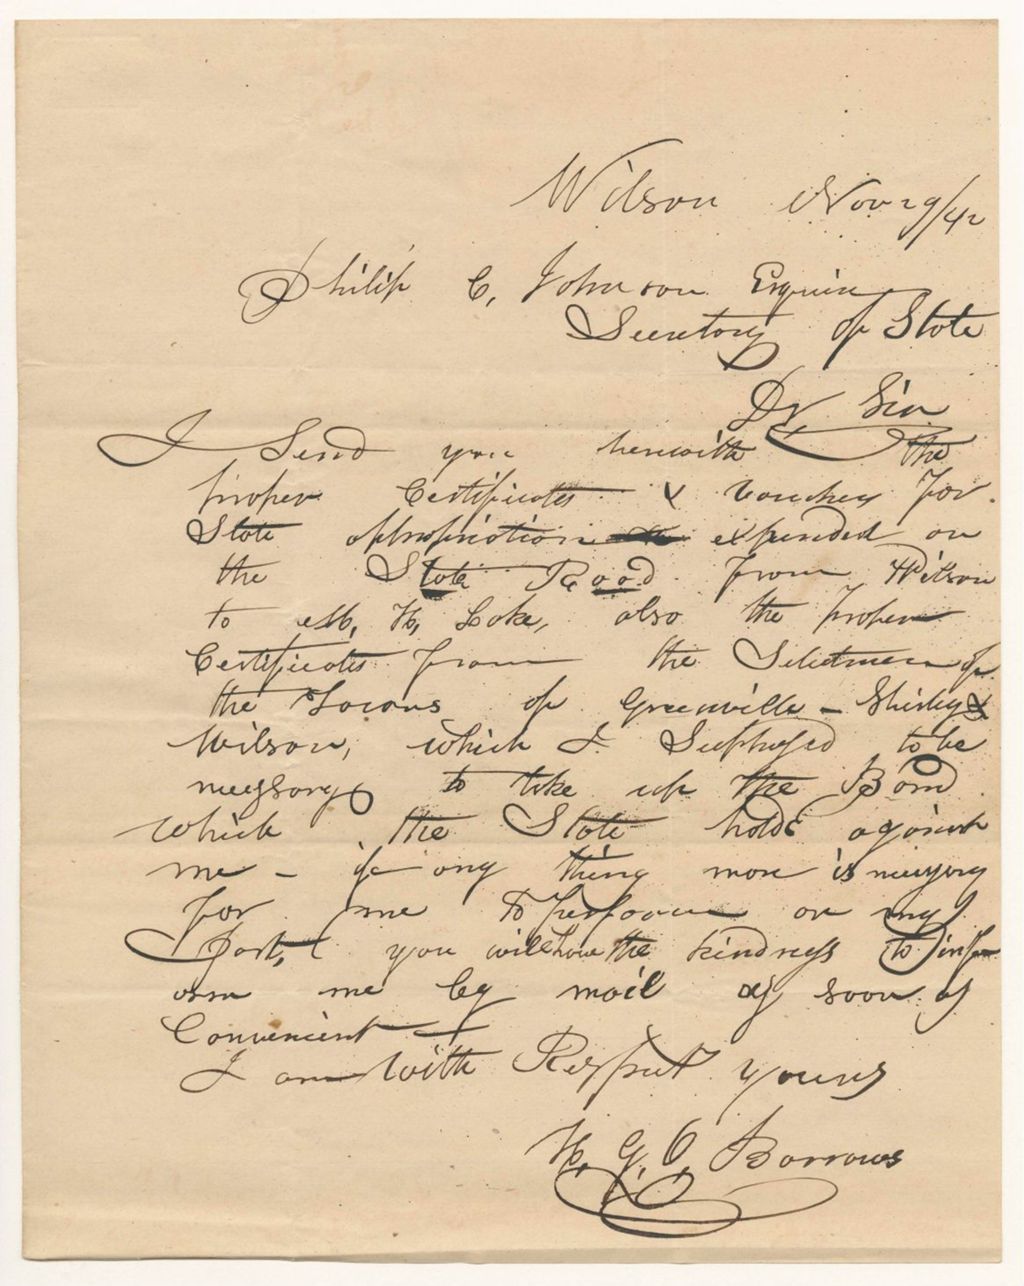 Wilson Nov 29/42
Philip C. Johnson Esquire
Secretary of State
Dr Sir
I Send you herewith the
proper Certificates & vouchey for
State appropriation expended on
the State Road from Wilson
to M, H, Lake, also the proper
Certificates from the Selectmen of
the Towns of Greenville - Shirley &
Wilson, which I Supposed to be
nessary to take up the Bond
which the State holds against
me - if any thing more is nessary
for me to perform on my
Part, you will have the kindness to inf
orm me by mail as soon as
Convenient
I am with Respect yours
H. G. O. Barrows